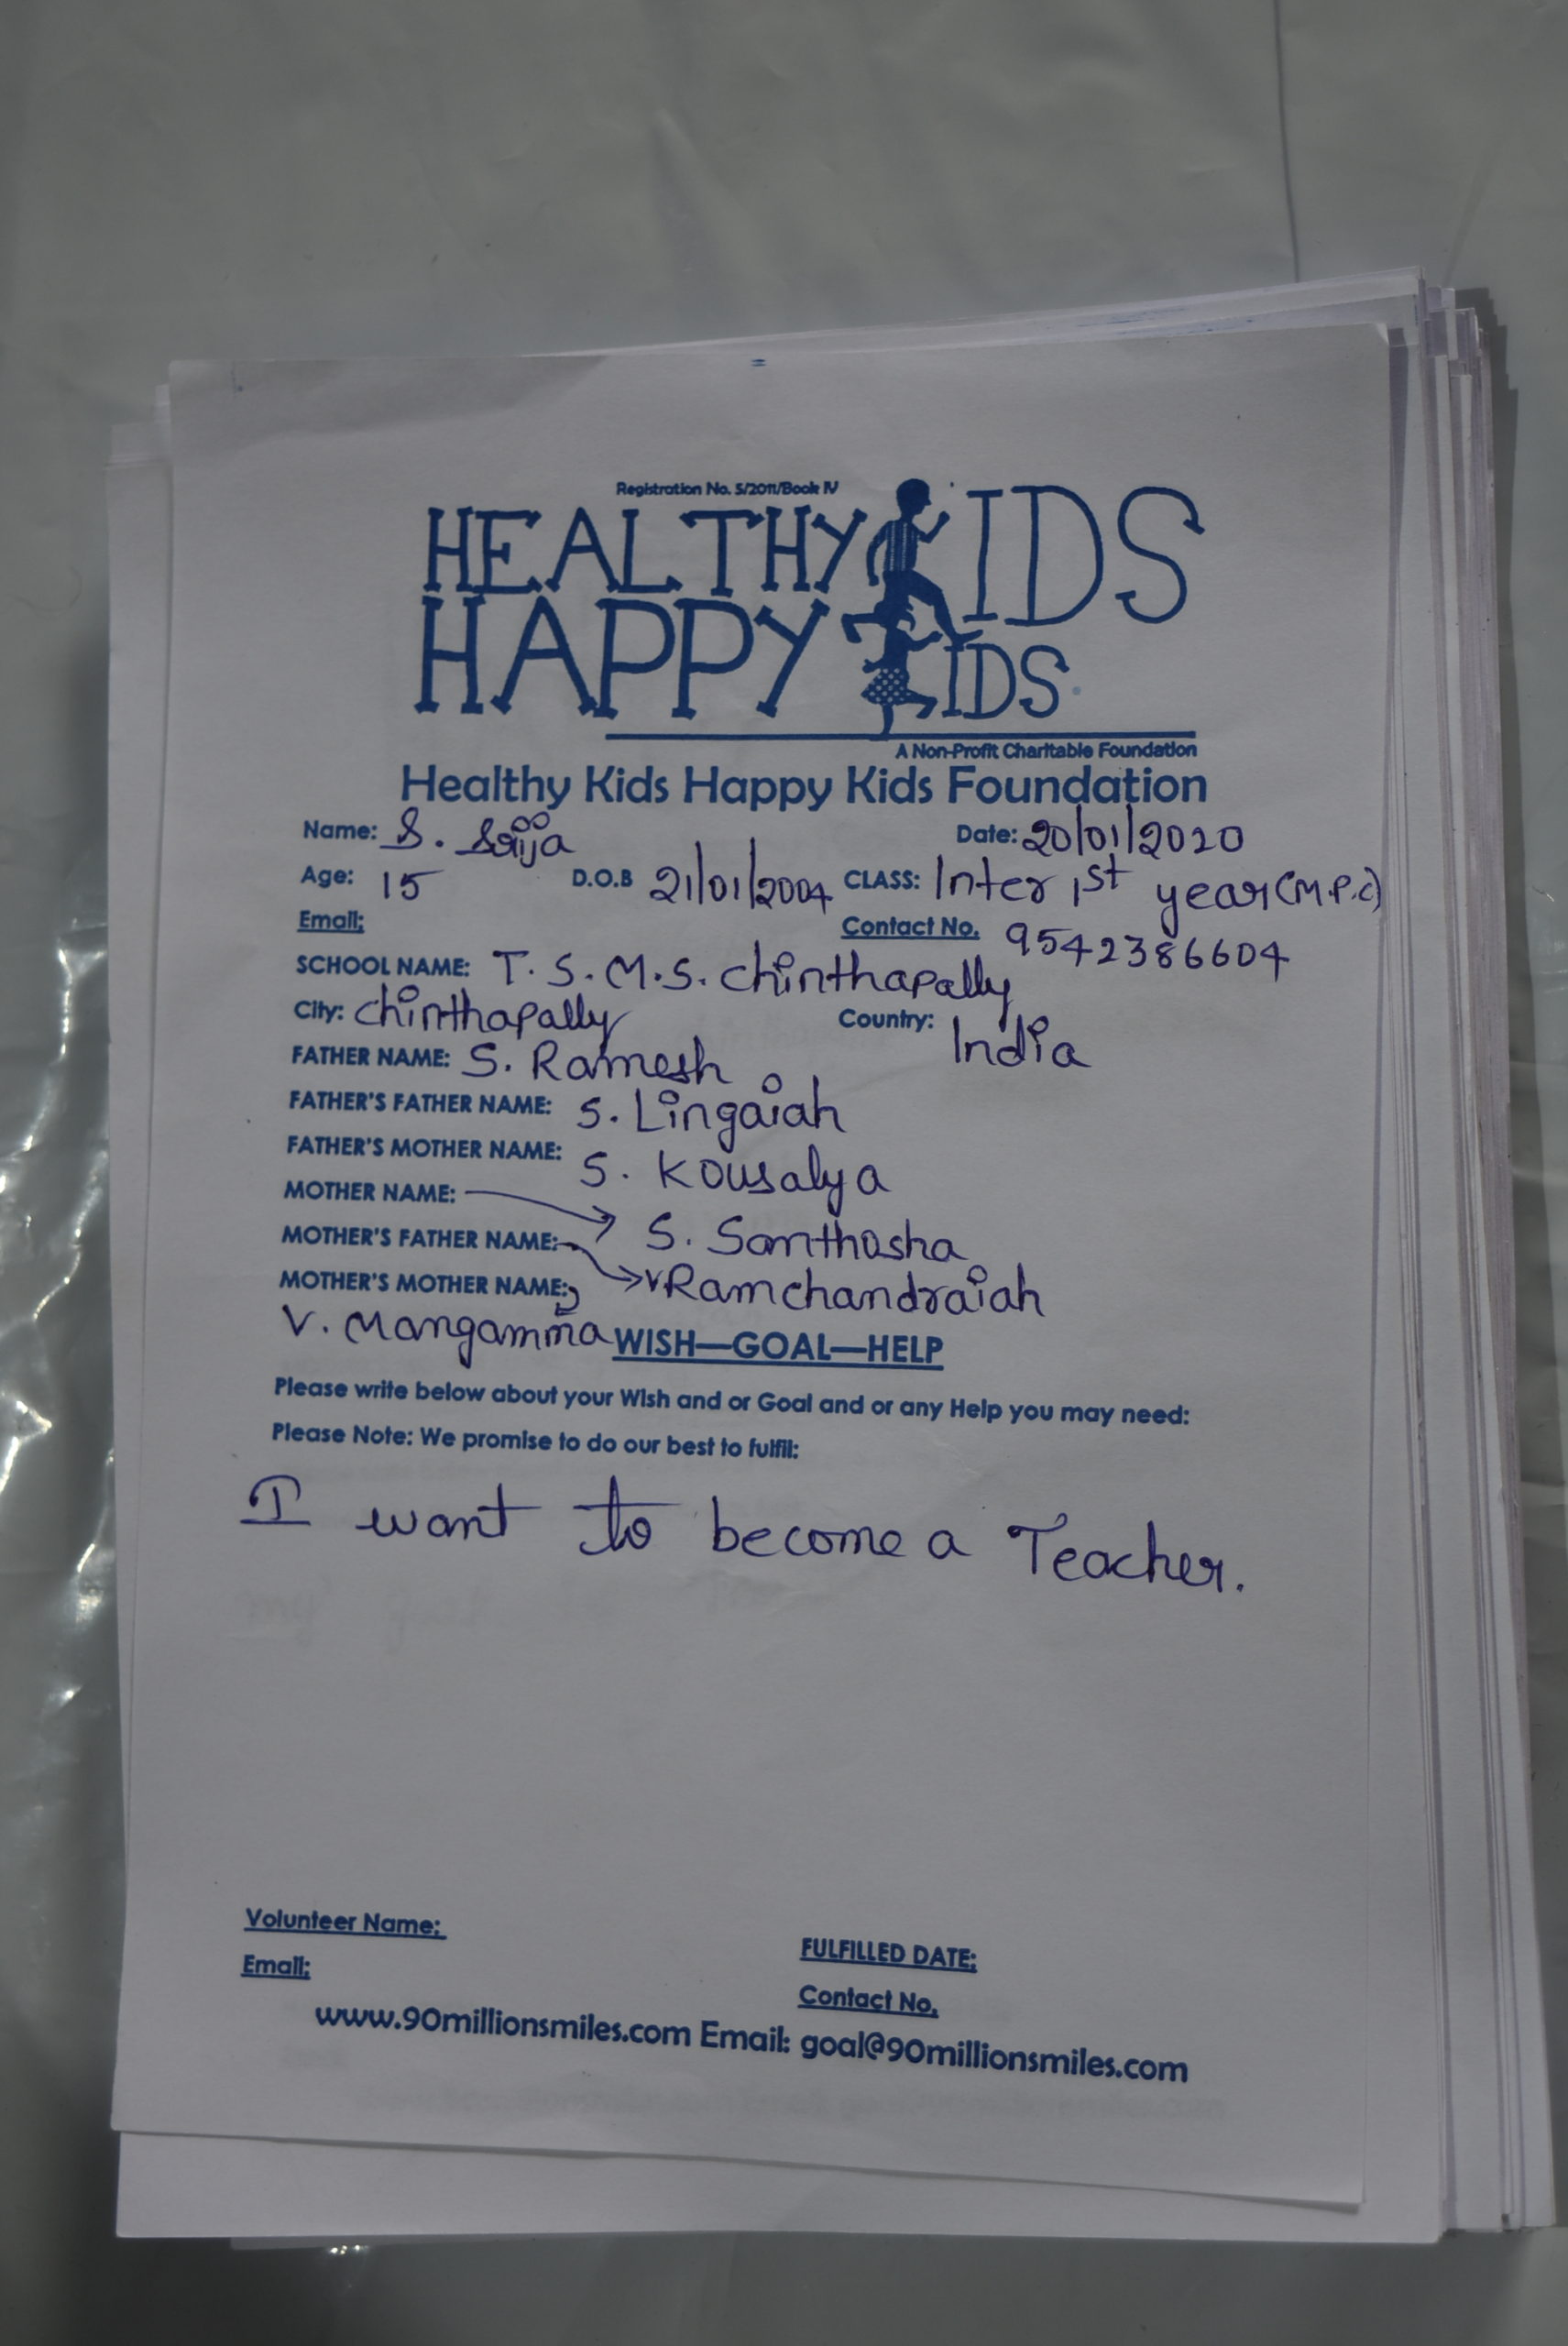 Registration No. 5/2011/Book IV
HEALTHY KIDS
HAPPY KIDS
A Non-Profit Charitable Foundation
Healthy Kids Happy Kids Foundation
Name: S. Srija Date: 20/01/2020
Age: 15 D.O.B 21/01/2004 CLASS: Inter 1st year (M.P.C)
Email: Contact No. 9542386604
SCHOOL NAME: T.S.M.S. chinthapally
City: chinthapally Country: India
FATHER NAME: S. Ramesh
FATHER'S FATHER NAME: S. Lingaiah
FATHER'S MOTHER NAME: S. Kousalya
MOTHER NAME: S. Santhosha
MOTHER'S FATHER NAME: V Ramchandraiah
MOTHER'S MOTHER NAME:
V. Mangamma WISH—GOAL—HELP
Please write below about your Wish and or Goal and or any Help you may need:
Please Note: We promise to do our best to fulfil:
I want to become a Teacher.
Volunteer Name: FULFILLED DATE:
Email: Contact No.
www.90millionsmiles.com Email: goal@90millionsmiles.com